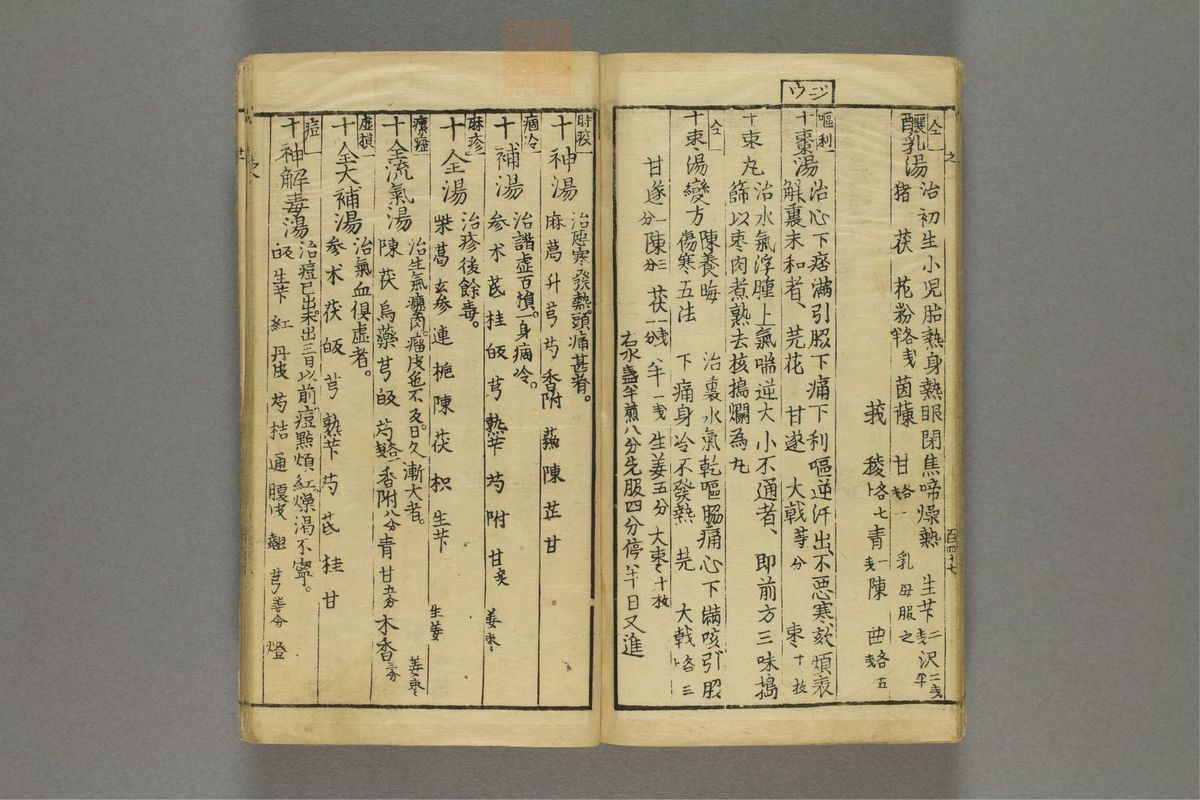 仝
釀乳湯
治初生小児胎熱身熱眼閉焦啼燥熱
生芐二戔 沢二戔半
猪 茯 花粉各戔半 茵蔯 甘各一戔 乳母服之
莪 稜各七卜 青一戔 陳 曲各五戔
ジウ
嘔利
十棗湯
治心下痞滿引脇下痛下利嘔逆汗出不悪寒欬煩表
解裏未和者、芫花 甘遂 大戟等分 枣十枚
十枣丸
治水氣浮腫上氣喘逆大小不通者、即前方三味搗
篩以枣肉煮熟去核搗爛為丸
仝
十枣湯變方
陳養晦
傷寒五法
治裏水氣乾嘔脇痛心下滿咳引脇
下痛身冷不發熱 芫 大戟各三卜
甘遂一分 陳三分 茯一戔一分 半一戔 生姜五分 大枣十枚
右水盞半煎八分先服四分停半日又進
之
百四十七
时疫
十神湯
治悪寒發熱。頭痛甚者。
麻 葛 升 芎 芍 香附 蘓 陳 芷 甘
痼冷
十補湯
治諸虚百損。一身病冷。
参 术 芪 桂 皈 芎 熟芐 芍 附 甘炙 姜枣
麻疹
十全湯
治疹後餘毒。
柴 葛 玄参 連 梔 陳 茯 枳 生芐 生姜
癭癌
十全流氣湯
治生氣癭肉瘤皮色不变。日久漸大者。 姜枣
陳 茯 烏藥 芎 皈 芍各戔 香附八分 青 甘五分 木香三分
虚損
十全大補湯
治氣血倶虚者。
参 术 茯 皈 芎 熟芐 芍 芪 桂 甘
痘
十神解毒湯
治痘已出未出三日以前。痘點煩紅燥渇不寧。
皈 生芐 紅 丹皮 芍 桔 通 腹皮 翹 芎等分 燈